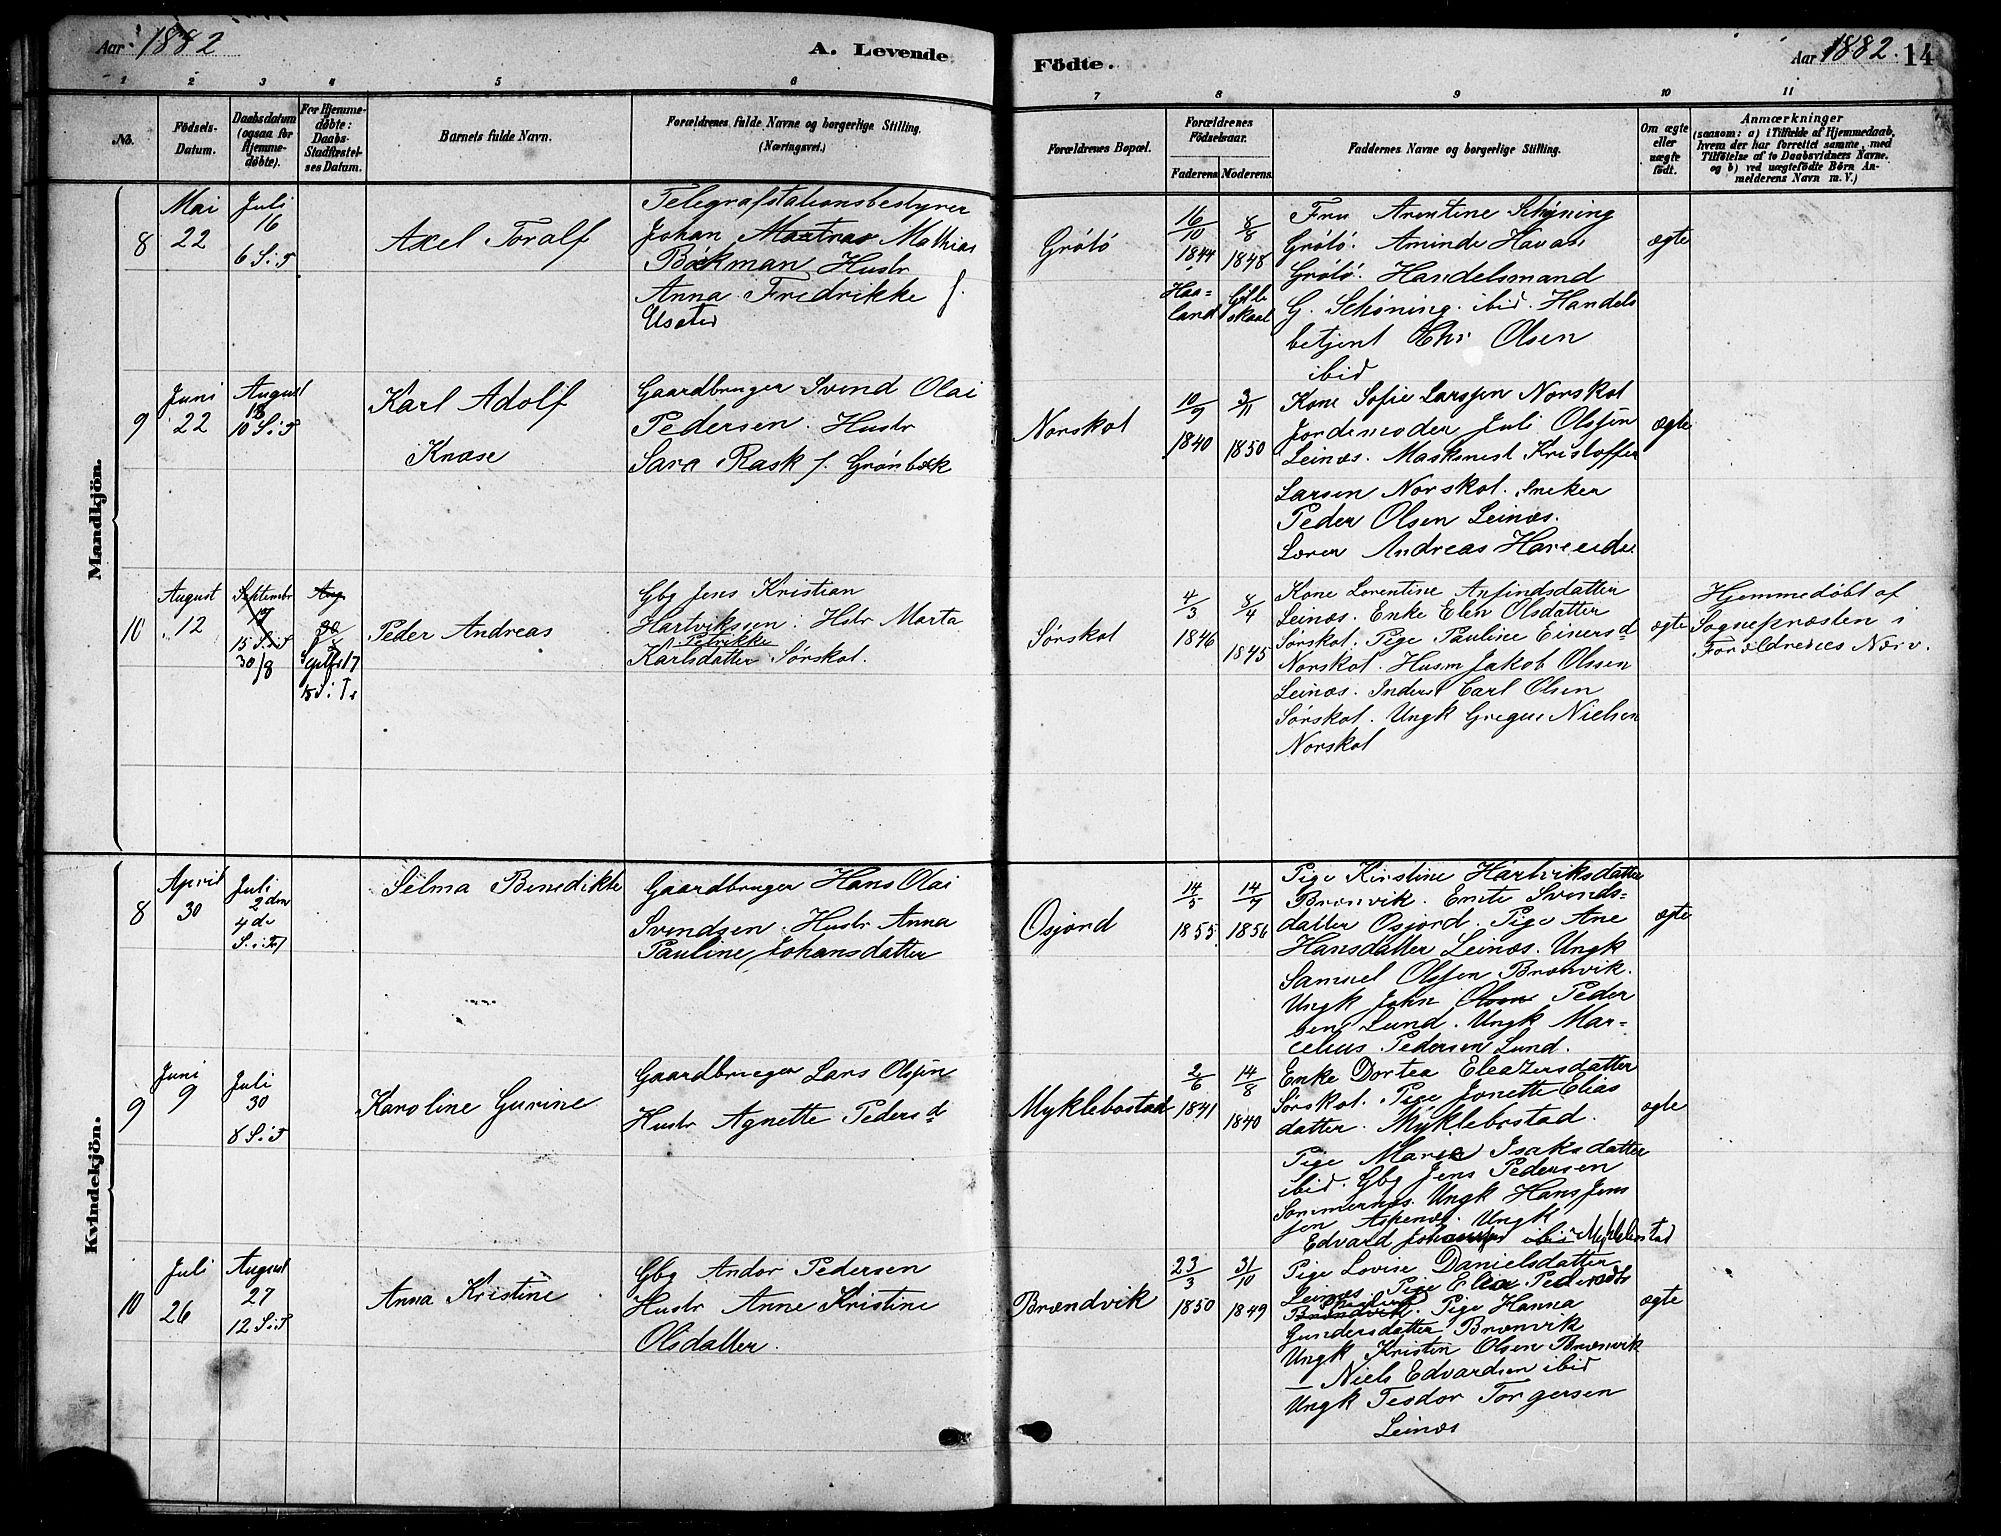 Aar 1882
A. Levende
Födte.
Aar 1882. 14
1 2 3 4 5 6 7 8 9 10 11
No.
Födsels-Datum.
Daabsdatum (ogsaa for Hjemme-döbte).
For Hjemme-döbte: Daabs-Stadfæstel-ses Datum.
Barnets fulde Navn.
Forældrenes fulde Navne og borgerlige Stilling.
(Næringsvei.)
Forældrenes Bopæl.
Forældrenes Födselsaar.
Faderens Moderens
Faddernes Navne og borgerlige Stilling.
Om ægte eller uægte födt.
Anmærkninger
(saasom: a) i Tilfælde af Hjemmedaab, hvem der har forrettet samme, med Tilföielse af to Daabsvidners Navne, og b) ved uægtefödte Börn Anmelderens Navn m. V.)
Mandkjön.
8
Mai
22
Juli
16
6 S. i T
Axel Toralf
Telegrafstationsbestyrer
Johan Mathias
Böckman Hustr
Anna Fredrikke f.
Grötö
16/10
1844
8/8
1848
Haa=
land
Gilde
skaal
Fru Arentine Schjning
Grötö. Aminde Havaas
Grötö. Handelsmand
G. Schöning. ibid. Handels
betjent Chr Olsen
ibid
ægte
9
Juni
22
August
13
10 S. i T
Karl Adolf
Knæse
Gaardbruger Svend Olai
Pedersen. Hustr
Sara Rask f. Grönbæk
Norskot
10/9
1840
3/11
1850
Kone Sofie Larssen Norskot
Jordemoder Juli Olssen
Leinæs. Maskinist Kristoffer
Larsen Norskot. Sneker
Peder Olsen Leinæs.
Lærer Andreas
ægte
10
August
12
Septembr
17
15 S. i T
30/8
Aug
30
Septbr 17
15 S. i T.
Peder Andreas
Gbg Jens Kristian
Hartvikssen. Hstr Marta
Petrikke
Karlsdatter Sørskot.
Sørskot
4/3
1846
8/4
1845
Kone Lorentine Anfindsdatter
Leinæs. Enke Elen Olsdatter
Sørskot. Pige Pauline Einersd
Norskot. Husm Jakob Olssen
Leinæs. Inderst Carl Olsen
Sørskot. Ungk Gregus Nielsen
Norskot
ægte
Hjemmedøbt af
Sognepræsten i
Forældrenes Nærv.
Kvindekjön.
8
April
30
Juli
2den
4de
S. i T
Selma Benedikte
Gaardbruger Hans Olai
Svendsen. Hustr Anna
Pauline Johansdatter
Osjord
14/5
1855
14/7
1856
Pige Kirstine Hartviksdatter
Brænvik. Enke Svends=
datter Osjord. Pige Ane
Hansdatter Leinæs. Ungk
Samuel Olssen Brænvik.
Ungk John Olsen Peder
sen Lund. Ungk Mar=
celius Pedersen Lund.
ægte
9
Juni
9
Juli
30
8 S. i T
Karoline Gurine
Gaardbruger Lars Olssen
Hustr Agnette Pedersd
Myklebostad
2/6
1841
14/8
1840
Enke Dortea Eleazersdatter
Sørskot. Pige Jonette Elias
datter. Myklebostad.
Pige Marie Isaksdatter
ibid. Gbg Jens Pedersen
Sommernes. Ungk Hans Jens
sen Aspenæs. Ungk
Edvard Johansen ibid Myklebostad
ægte
10
Juli
26
August
27
12 S. i T
Anna Kristine
Gbg Andor Pedersen
Hustr Anne Kristine
Olsdatter.
Brændvik
23/3
1850
31/10
1849
Pige Lovise Danielsdatter
Leinæs. Pige Elea Pedersdtr
Brændvik. Pige Hanna
Gundersdatter Brænvik
Ungk Kristen Olsen Brænvik
— Niels Edvardsen ibid
Ungk Teodor Torgersen
Leinæs
ægte